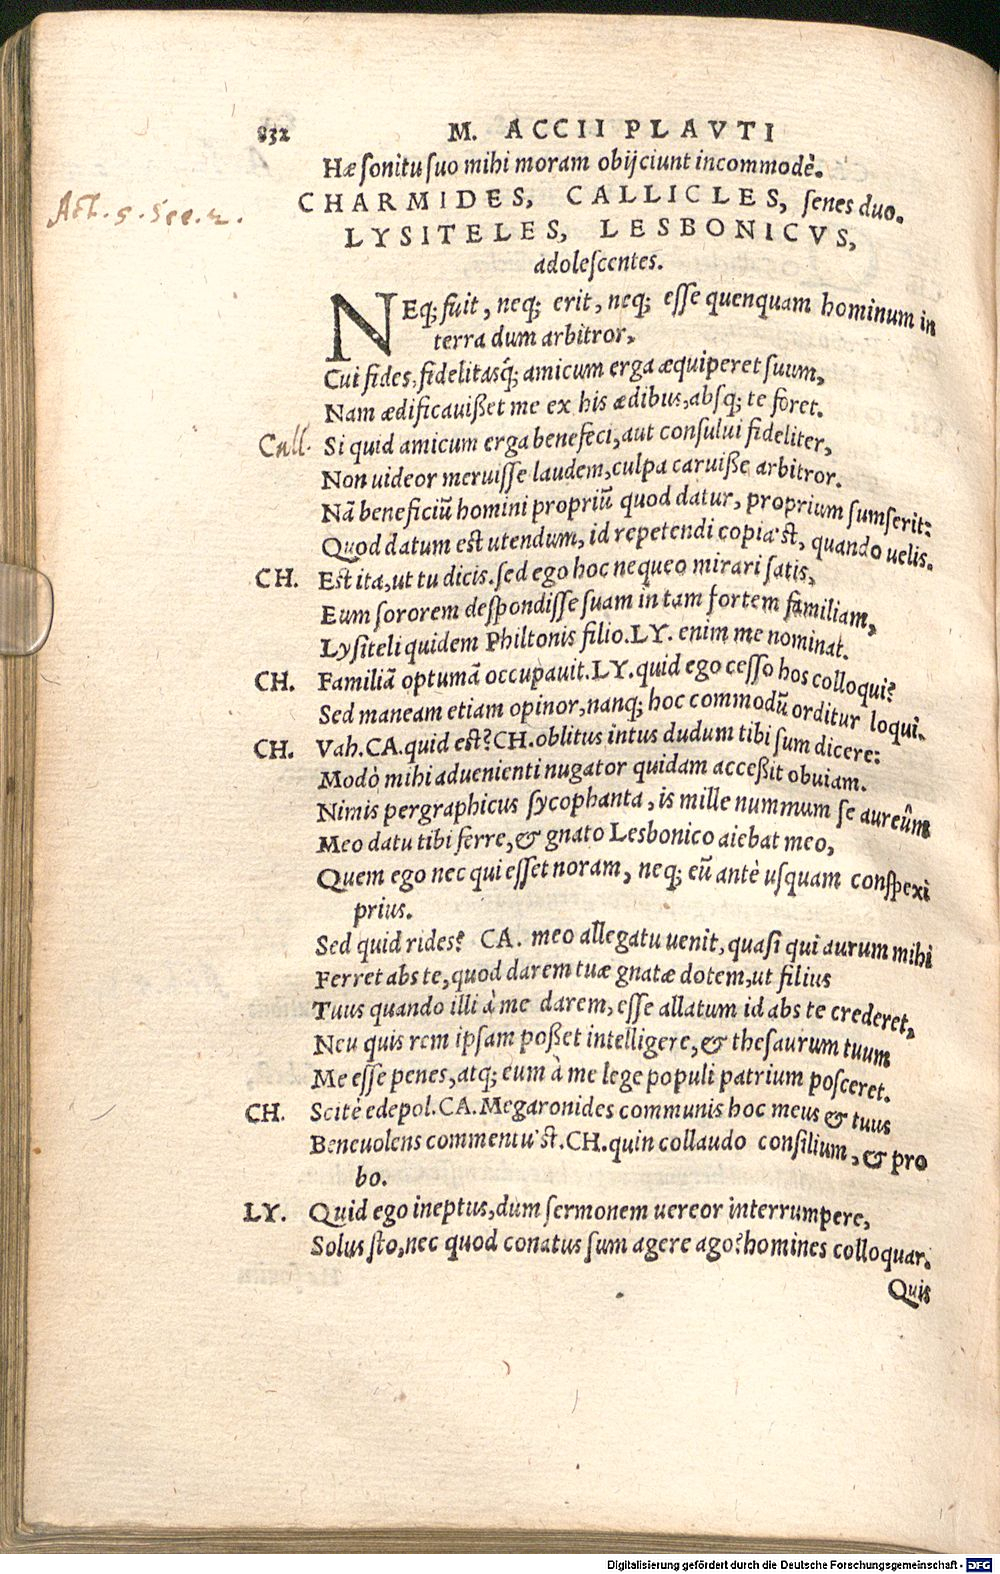 832 M. ACCII PLAVTI
Hæ sonitu suo mihi moram obijciunt incommodè.
Act. 5. Sce. 2.
CHARMIDES, CALLICLES, senes duo.
LYSITELES, LESBONICVS,
adolescentes.
NEq; fuit, neq; erit, neq; esse quenquam hominum in
terra dum arbitror,
Cui fides, fidelitasq́; amicum erga æquiperet suum,
Nam ædificauißet me ex his ædibus, absq; te foret.
Call. Si quid amicum erga benefeci, aut consului fideliter,
Non uideor meruisse laudem, culpa caruiße arbitror.
Nã beneficiũ homini propriũ quod datur, proprium sumserit:
Quod datum est utendum, id repetendi copia'st, quando uelis.
CH. Est ita, ut tu dicis. sed ego hoc nequeo mirari satis,
Eum sororem despondisse suam in tam fortem familiam,
Lysiteli quidem Philtonis filio. LY. enim me nominat.
CH. Familiã optumã occupauit. LY. quid ego cesso hos colloqui?
Sed maneam etiam opinor, nanq; hoc commodũ orditur loqui.
CH. Vah. CA. quid est? CH. oblitus intus dudum tibi sum dicere:
Modò mihi aduenienti nugator quidam acceßit obuiam.
Nimis pergraphicus sycophanta, is mille nummum se aureûm
Meo datu tibi ferre, & gnato Lesbonico aiebat meo,
Quem ego nec qui esset noram, neq; eũ antè usquam conspexi
prius.
Sed quid rides? CA. meo allegatu uenit, quasi qui aurum mihi
Ferret abs te, quod darem tuæ gnatæ dotem, ut filius
Tuus quando illi à me darem, esse allatum id abs te crederet,
Neu quis rem ipsam poßet intelligere, & thesaurum tuum
Me esse penes, atq; eum à me lege populi patrium posceret.
CH. Scitè edepol. CA. Megaronides communis hoc meus & tuus
Beneuolens commentu'st. CH. quin collaudo consilium, & pro
bo.
LY. Quid ego ineptus, dum sermonem uereor interrumpere,
Solus sto, nec quod conatus sum agere ago? homines colloquar.
Quis
Digitalisierung gefördert durch die Deutsche Forschungsgemeinschaft - DFG